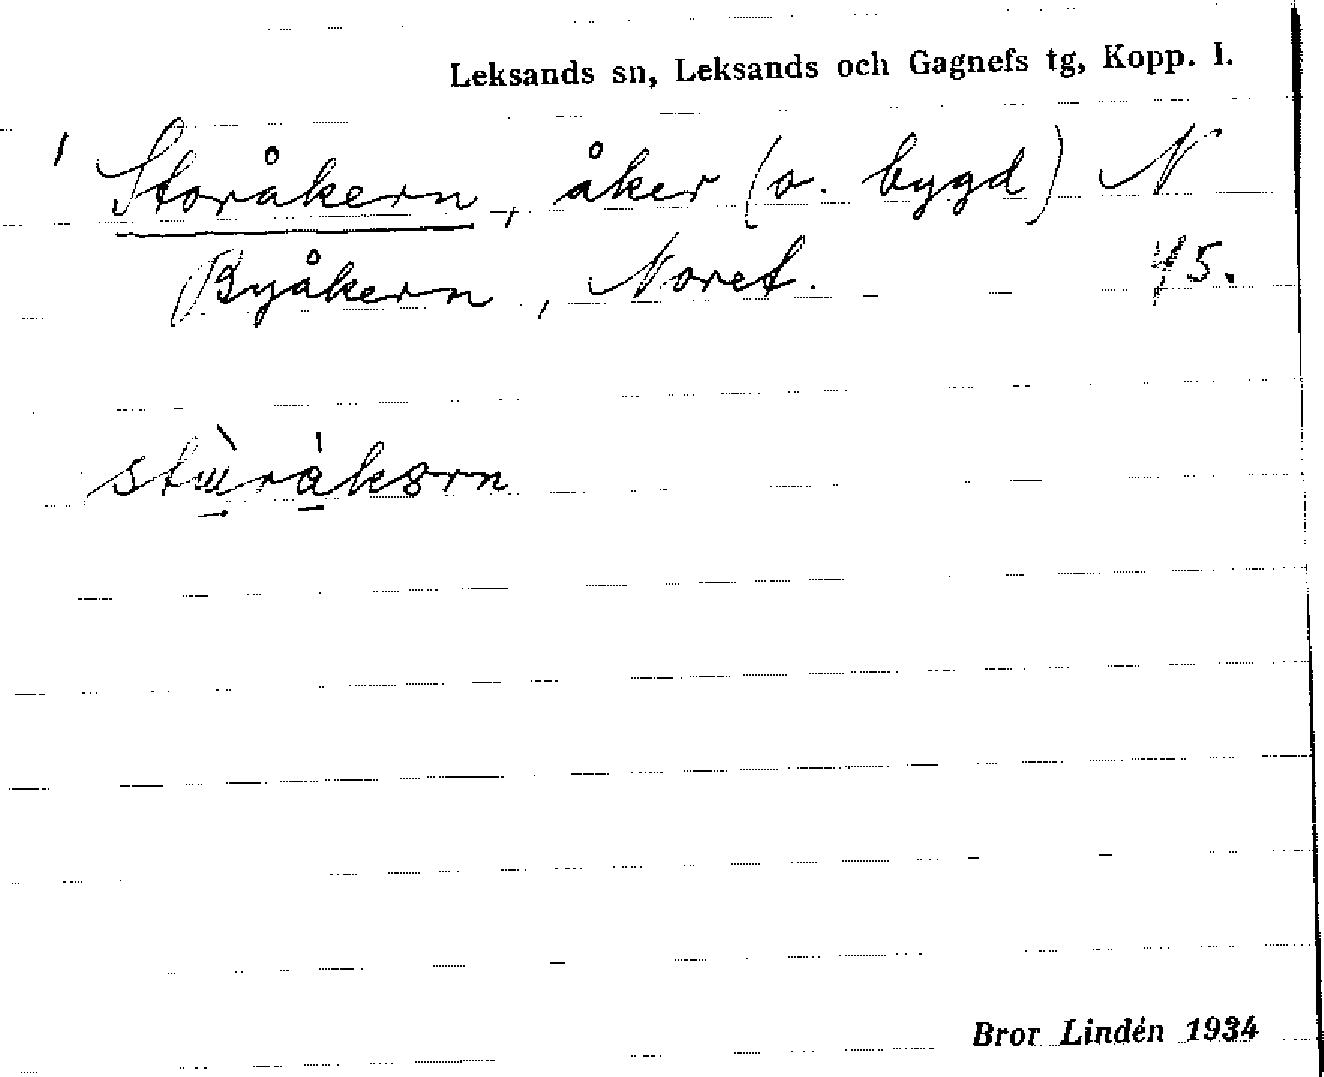 Leksands sn, Leksands och Gagnefs tg, Kopp. l.
' Storåkern, åker (o. bygd) N
Byåkern, Noret. 45.
Bror Lindén 1934